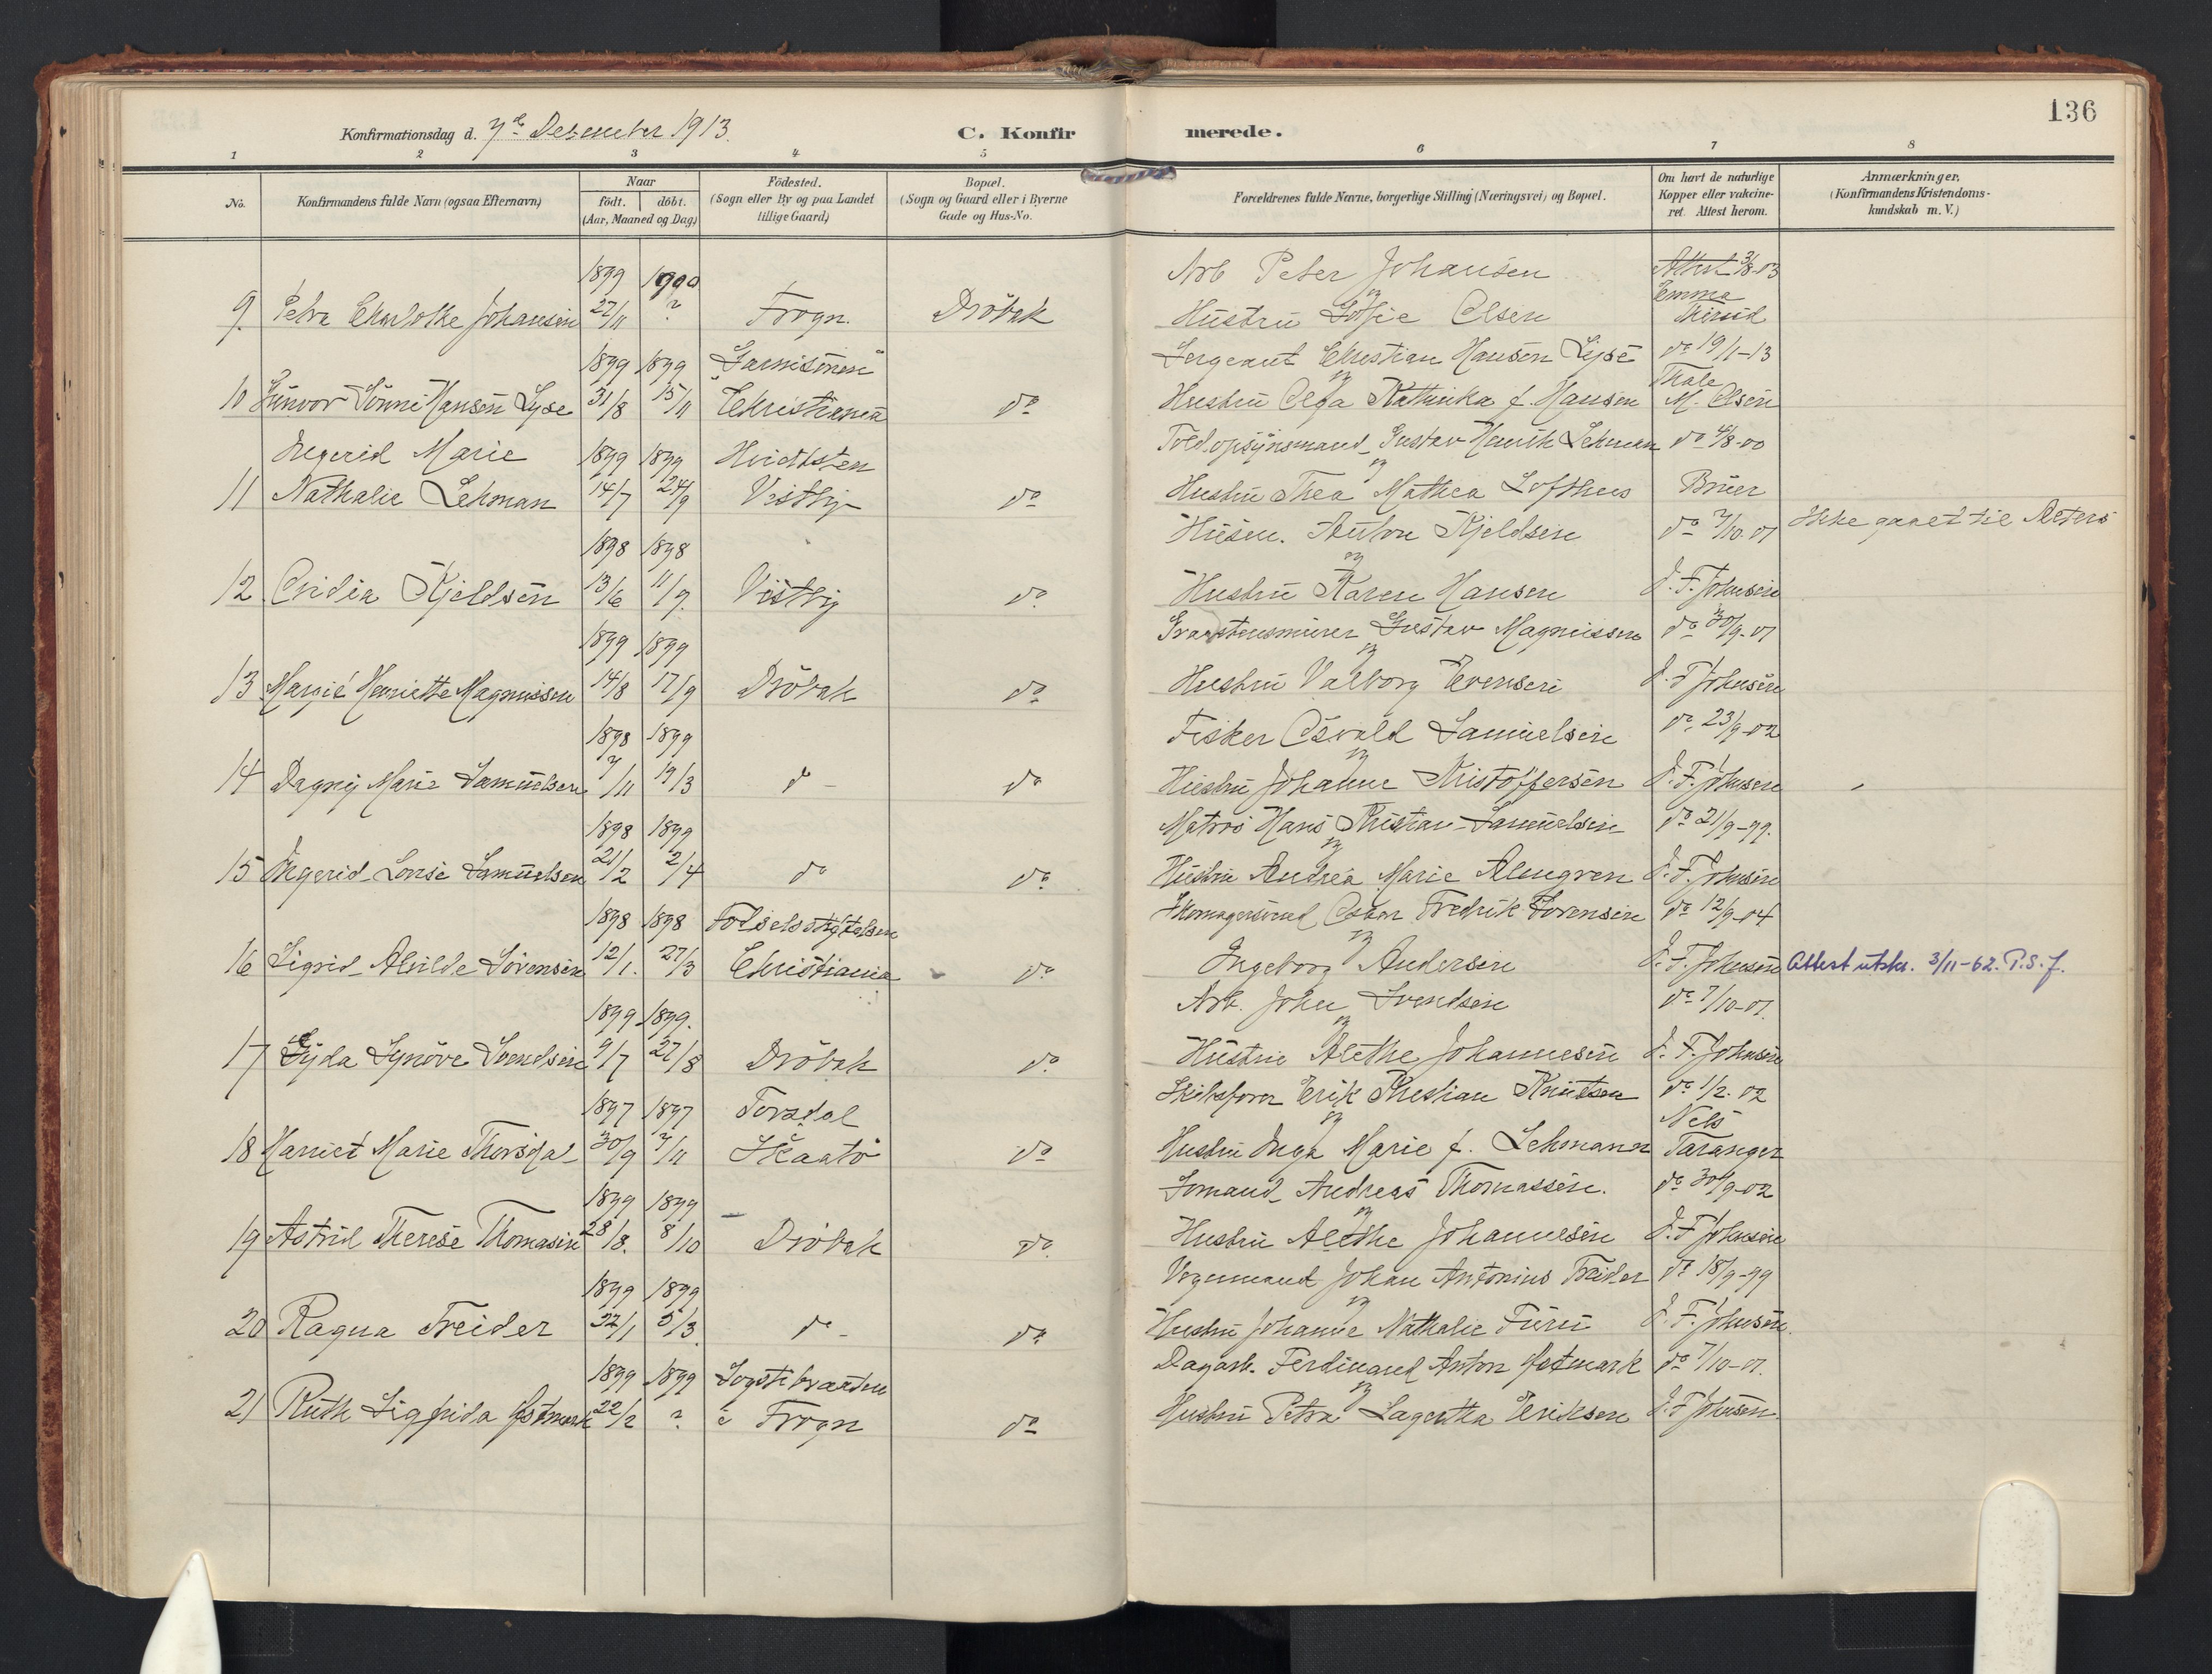 136
Konfirmationsdag d. 7de Desember 1913.
C. Konfirmerede.
1 2 3 4 5 6 7 8
No.
Konfirmandens fulde Navn (ogsaa Efternavn)
Naar
födt. döbt.
(Aar, Maaned og Dag)
Födested.
(Sogn eller By og paa Landet
tillige Gaard)
Bopæl.
(Sogn og Gaard eller i Byerne
Gade og Hus-No.
Forældrenes fulde Navne, borgerlige Stilling (Næringsvei) og Bopæl.
Om havt de naturlige
Kopper eller vakcine-
ret. Attest herom.
Anmærkninger,
(Konfirmandens Kristendoms-
kundskab m. V.)
1899 1900 Arb Peter Johansen Attest 3/8-03
og Emma
9. Petra Charlotte Johansen 27/11 ? Frogn. Dröbak Hustru Sofie Olsen
1899 1899 "Garnisonen" Sergeant Christian Hansen Lyse do 19/1-13
og Thale
10 Gunvor Sönni Hansen Lyse 31/8 15/11 Christiania do Hustru Olga Kathinka f. Hansen M. Olsen
Ingerid Marie 1899 1899 Hvidtsten Toldopsynsmand Gustav Henrik Lehman do 4/8-00
og
11 Nathalie Lehman 14/7 24/9 Vestby do Hustru Thea Mathea Lofthus Bruer
1898 1898 Husm. Anton Kjeldsen do 7/10-01 Ikke gaaet til Alters
og
12. Ovidia Kjeldsen 13/6 11/9. Vestby do Hustru Karen Hansen J. F. Johnsen
1899 1899 Graastensmurer Gustav Magnussen do 30/9-01
og
13 Margit Henriette Magnussen 14/8 17/9 Dröbak do Hustru Valborg Evensen J. F Johnsen
1898 1899 Fisker Osvald Samuelsen do 23/9-02
og
14 Dagny Marie Samuelsen 7/11 19/3 do do Hustru Johanne Kristoffersen J. F. Johnsen
1898 1899 Matros Hans Kristian Samuelsen do 21/9-99.
og
15 Ingerid Lovise Samuelsen 21/2 2/4 do do Hustru Andrea Marie Almgren J. F. Johnsen
1898 1898 Födselsstiftelsen Skomagersvend Oskar Fredrik Sörensen do 12/9-04
og
16 Sigrid Alvilde Sörensen 12/1. 27/3 Christiania do Ingeborg Andersen J. F. Johnsen Attest utstr. 3/11-62. P.S.f.
1899 1899. Arb. John Svendsen do 7/10-01.
og
17 Lyda Synöve Svendsen 9/7 27/8 Dröbak do Hustru Alethe Johannesen J. F. Johnsen
1897 1897 Torsdal Skibsförer Erik Kristian Knutsen do 1/2-02
og Nels
18 Harriet Marie Thorsdal 30/9 7/11 Skaatö do Hustru Inga Marie f. Lehmann Taranger
1899 1899 Sömand Andreas Thomassen. do 30/9-02
og
19 Astrid Therese Thomasen 28/8. 8/10 Dröbak do Hustru Alethe Johannesen J. F Johnsen
1899 1899 Vognmand Johan Antonius Treider do 18/9-99
og
20 Ragna Treider 22/1 5/3 do do Hustru Johanne Nathalie Furu J. F. Johnsen.
1899 1899 Sogstibraaten Dagarb. Ferdinand Anton Østmark do 7/10-01.
og
21 Ruth Sigfrida Østmark 22/2 ? i Frogn do Hustru Petra Lagertha Eriksen J. F Johnsen.